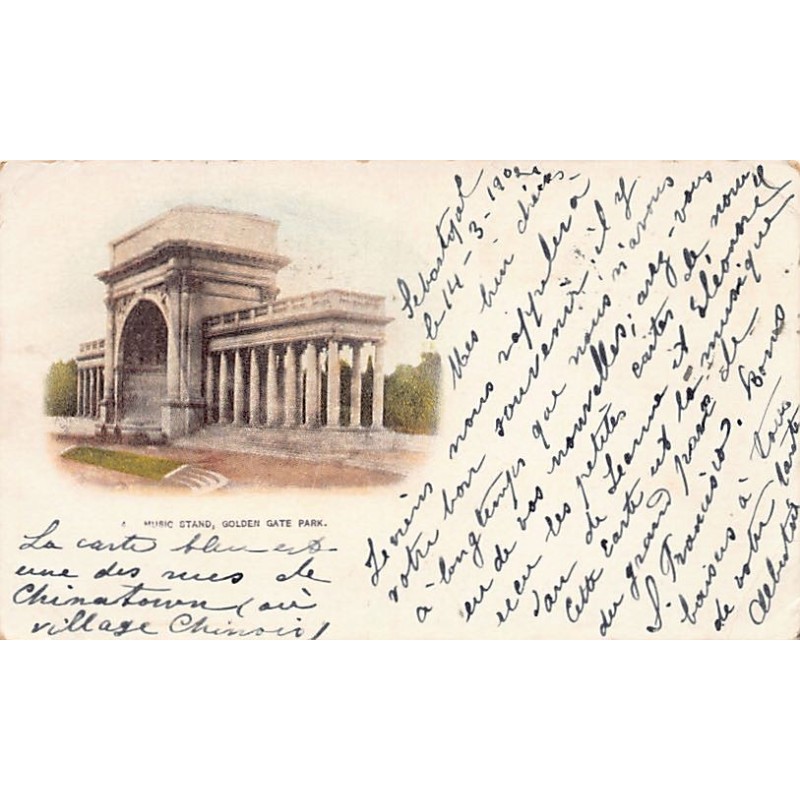 MUSIC STAND, GOLDEN GATE PARK.
La carte bleu est
une des rues de
Chinatown (ou
village Chinois)
Sebastopol
le 14-3-1902
Mes bien chères.
Je viens nous rappeler à
votre bon souvenir, il y
à longtemps que nous n'avons
eu de vos nouvelles, avez-vous
reçu les petites cartes de nouvel
d'an de Jeanne et Eléonore
Cette carte est la musique
du grand parc de
S. Francisco. Bons
baisers à tous
de votre tante